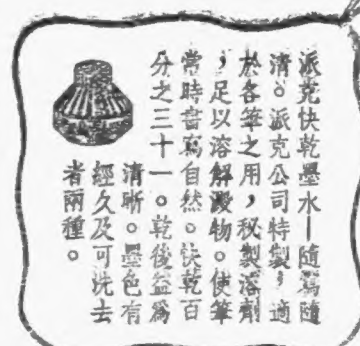 派克快乾墨水—隨寫隨
清。派克公司特製，適
於各筆之用，秘製溶劑
，足以溶解澱物。使筆
常時書寫自然。快乾百
分之三十一。乾後益爲
清晰。墨色有
經久及可洗去
者兩種。